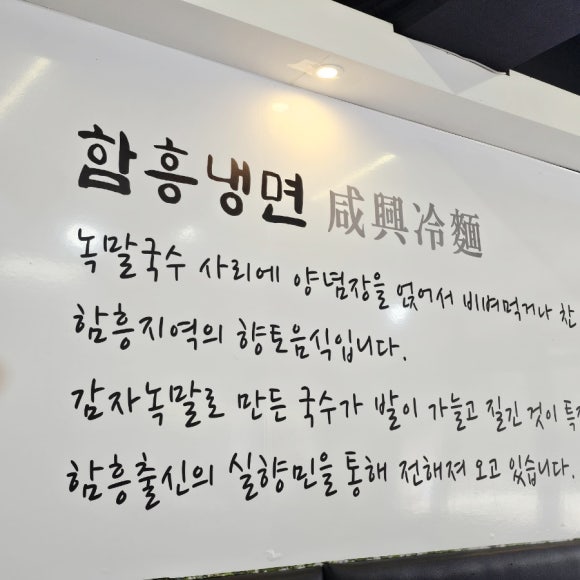 함흥냉면 咸興冷麵
녹말국수 사리에 양념장을 얹어서 비벼먹거나 찬
함흥지역의 향토음식입니다.
감자녹말로 만든 국수가 발이 가늘고 질긴 것이
함흥출신의 실향민을 통해 전해져 오고 있습니다.